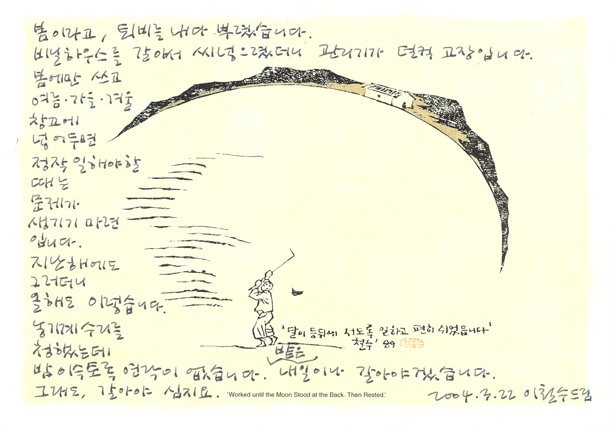 봄이라고, 퇴비를 내다 뿌렸습니다.
비닐하우스를 갈아서 씨넣으렸더니 관리기가 덜컥 고장입니다.
봄에만 쓰고
여름·가을·겨울
창고에
넣어두면
정작 일해야할
때는
문제가
생기기 마련
입니다.
지난해에도
그러더니
올해도 이렇습니다.
농기계수리를
청했는데
밤이슥토록 연락이 없습니다. 내일이나 갈아야겠습니다.
그래도, 갈아야 심지요.
'달이 등뒤에 서도록 일하고 편히 쉬었습니다'
철수 '89
밭은
'Worked until the Moon Stood at the Back. Then Rested.'
2004.3.22 이철수드림